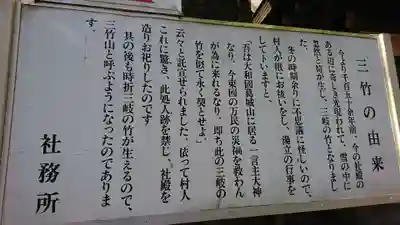 三竹の由来
今より千百五十余年前、今の社殿の
ある辺に奇しき光現われて、雪の中に
忽然と竹が生じ、三岐の竹となりまし
た。
冬の時期余りに不思議に怪しいので、
村人が相にお祓いをし、湯立の行事を
して卜いますと、
「吾は大和國葛城山に居る一言主大神
なり、今東国の万民の災禍を救わん
が為に来れるなり、即ち此の三岐の
竹を以て永く契とせよ」
云々と託宣せられました、依って村人
これに驚き、此処人跡を禁じ、社殿を
造りお祀りしたのです
其の後も時折三岐の竹が生えるので、
三竹山と呼ぶようになったのでありま
す。
社務所